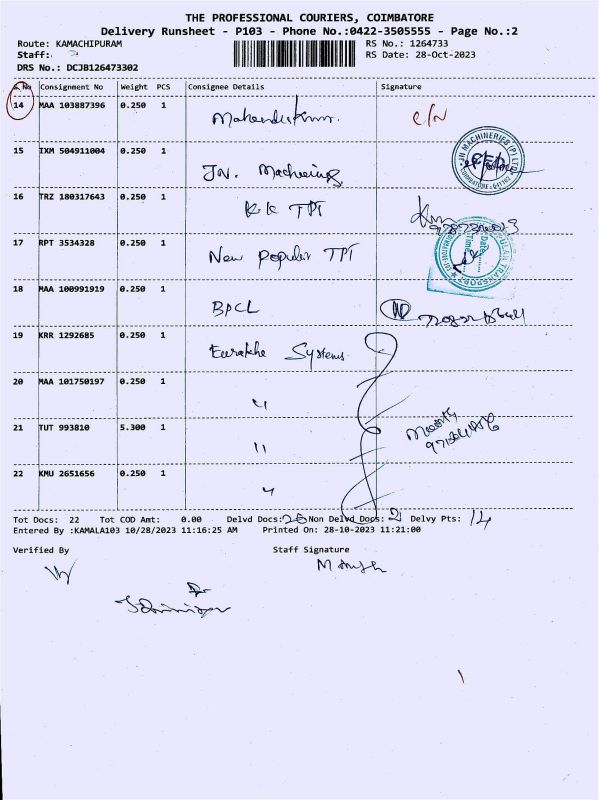 THE PROFESSIONAL COURIERS, COIMBATORE
Delivery Runsheet - P103 - Phone No.:0422-3505555 - Page No.:2
Route: KAMACHIPURAM RS No.: 1264733
Staff: RS Date: 28-Oct-2023
DRS No.: DCJB126473302
S.No Consignment No Weight PCS Consignee Details Signature
14 MAA 103887396 0.250 1 C/N
15 IXM 504911004 0.250 1 JN. JN MACHINERIES (P) LTD
16 TRZ 180317643 0.250 1 KK TPT
17 RPT 3534328 0.250 1 New Popular TPT
18 MAA 100991919 0.250 1 BPCL
19 KRR 1292685 0.250 1 Systems
20 MAA 101750197 0.250 1 "
21 TUT 993810 5.300 1 "
22 KMU 2651656 0.250 1 "
Tot Docs: 22 Tot COD Amt: 0.00 Delvd Docs: 20 Non Delvd Docs: 2 Delvy Pts: 14
Entered By :KAMALA103 10/28/2023 11:16:25 AM Printed On: 28-10-2023 11:21:00
Verified By Staff Signature